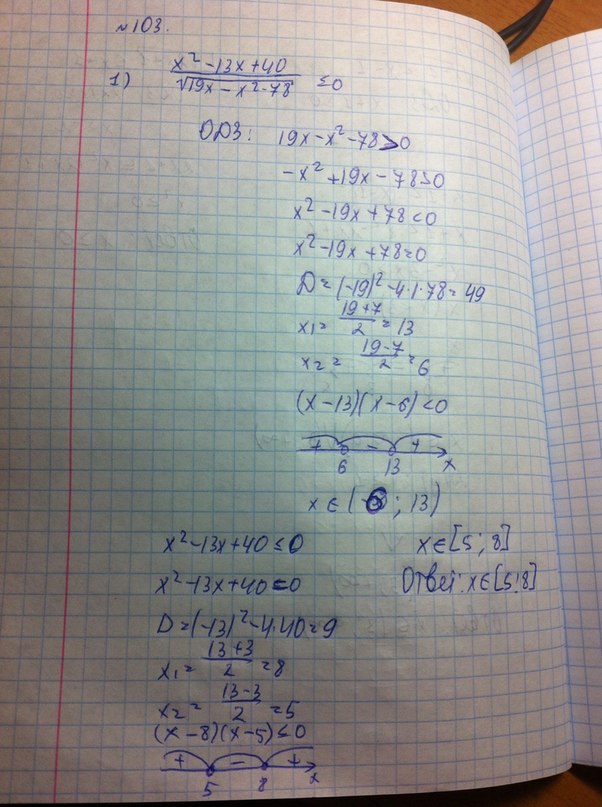 №103.
1) (x² - 13x + 40) / √(19x - x² - 78) ≤ 0
ОДЗ: 19x - x² - 78 > 0
-x² + 19x - 78 > 0
x² - 19x + 78 < 0
x² - 19x + 78 = 0
D = (-19)² - 4·1·78 = 49
x₁ = (19 + 7) / 2 = 13
x₂ = (19 - 7) / 2 = 6
(x - 13)(x - 6) < 0
+ - +
6 13 x
x ∈ (6; 13)
x² - 13x + 40 ≤ 0
x² - 13x + 40 = 0
D = (-13)² - 4·40 = 9
x₁ = (13 + 3) / 2 = 8
x₂ = (13 - 3) / 2 = 5
(x - 8)(x - 5) ≤ 0
+ - +
5 8 x
x ∈ [5; 8]
Ответ: x ∈ [5; 8]